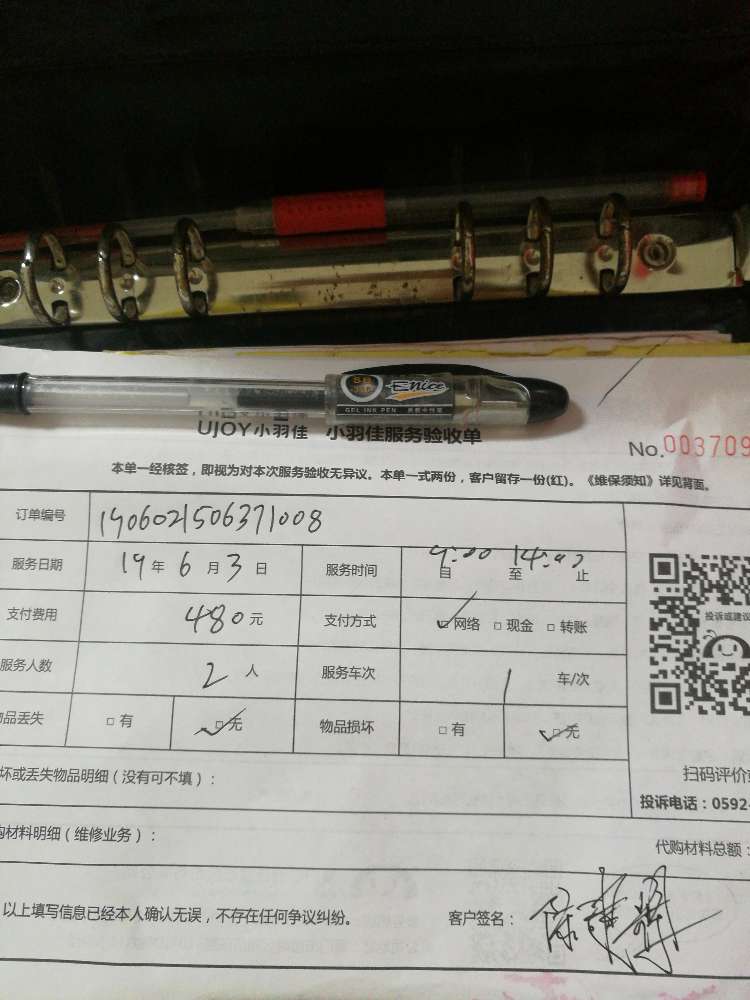 Enice
GEL INK PEN
UJOY小羽佳 小羽佳服务验收单
No.003709
本单一经核签，即视为对本次服务验收无异议。本单一式两份，客户留存一份(红)。《维保须知》详见背面。
订单编号 190602150637１008
服务日期 19年 6月 3日 服务时间 9:00 14:00
自 至 止
支付费用 480元 支付方式 网络 现金 转账
投诉或建议
服务人数 2人 服务车次 1 车/次
品丢失 有 无 物品损坏 有 无
坏或丢失物品明细（没有可不填）：
扫码评价
投诉电话：0592-
购材料明细（维修业务）：
代购材料总额：
以上填写信息已经本人确认无误，不存在任何争议纠纷。 客户签名：